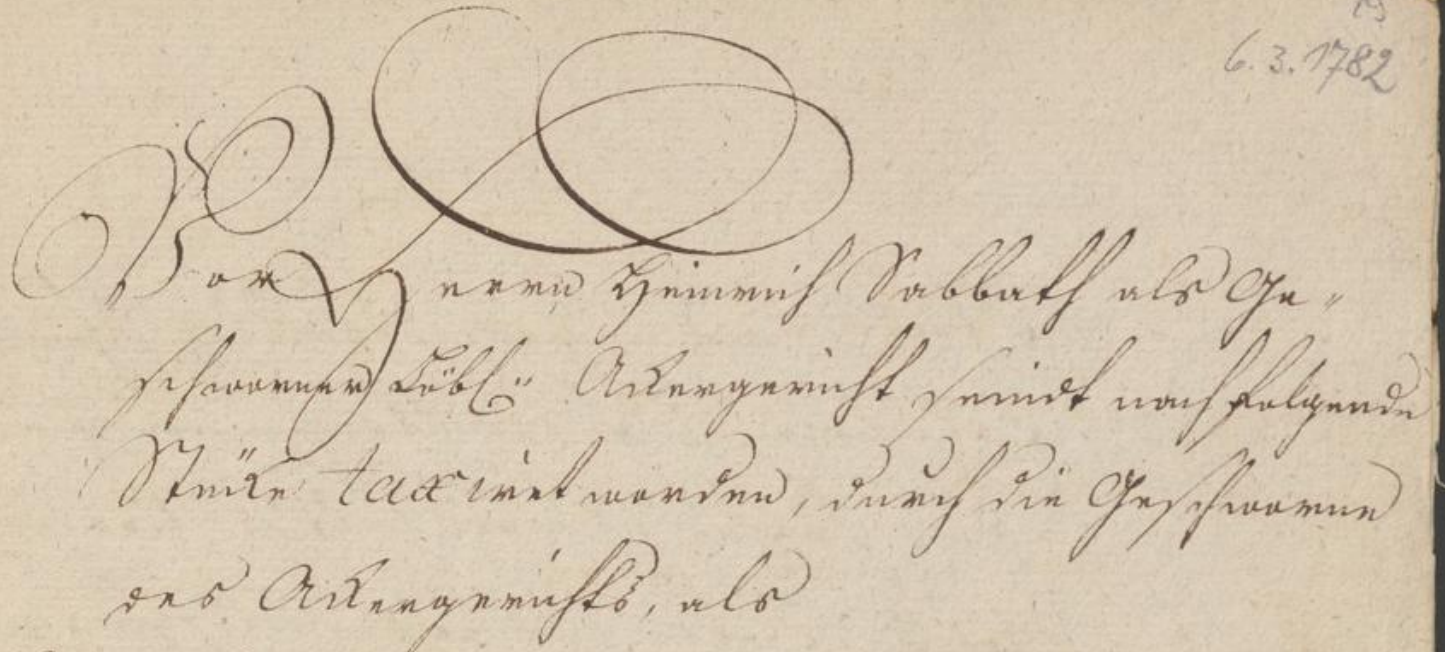 19
6. 3. 1782
Vor Herrn Heinrich Sabbath als Ge-
schworner Löbl: Akergericht seindt nachfolgende
Stücke taxiret worden, durch die Geschworne
des Akergerichts, als